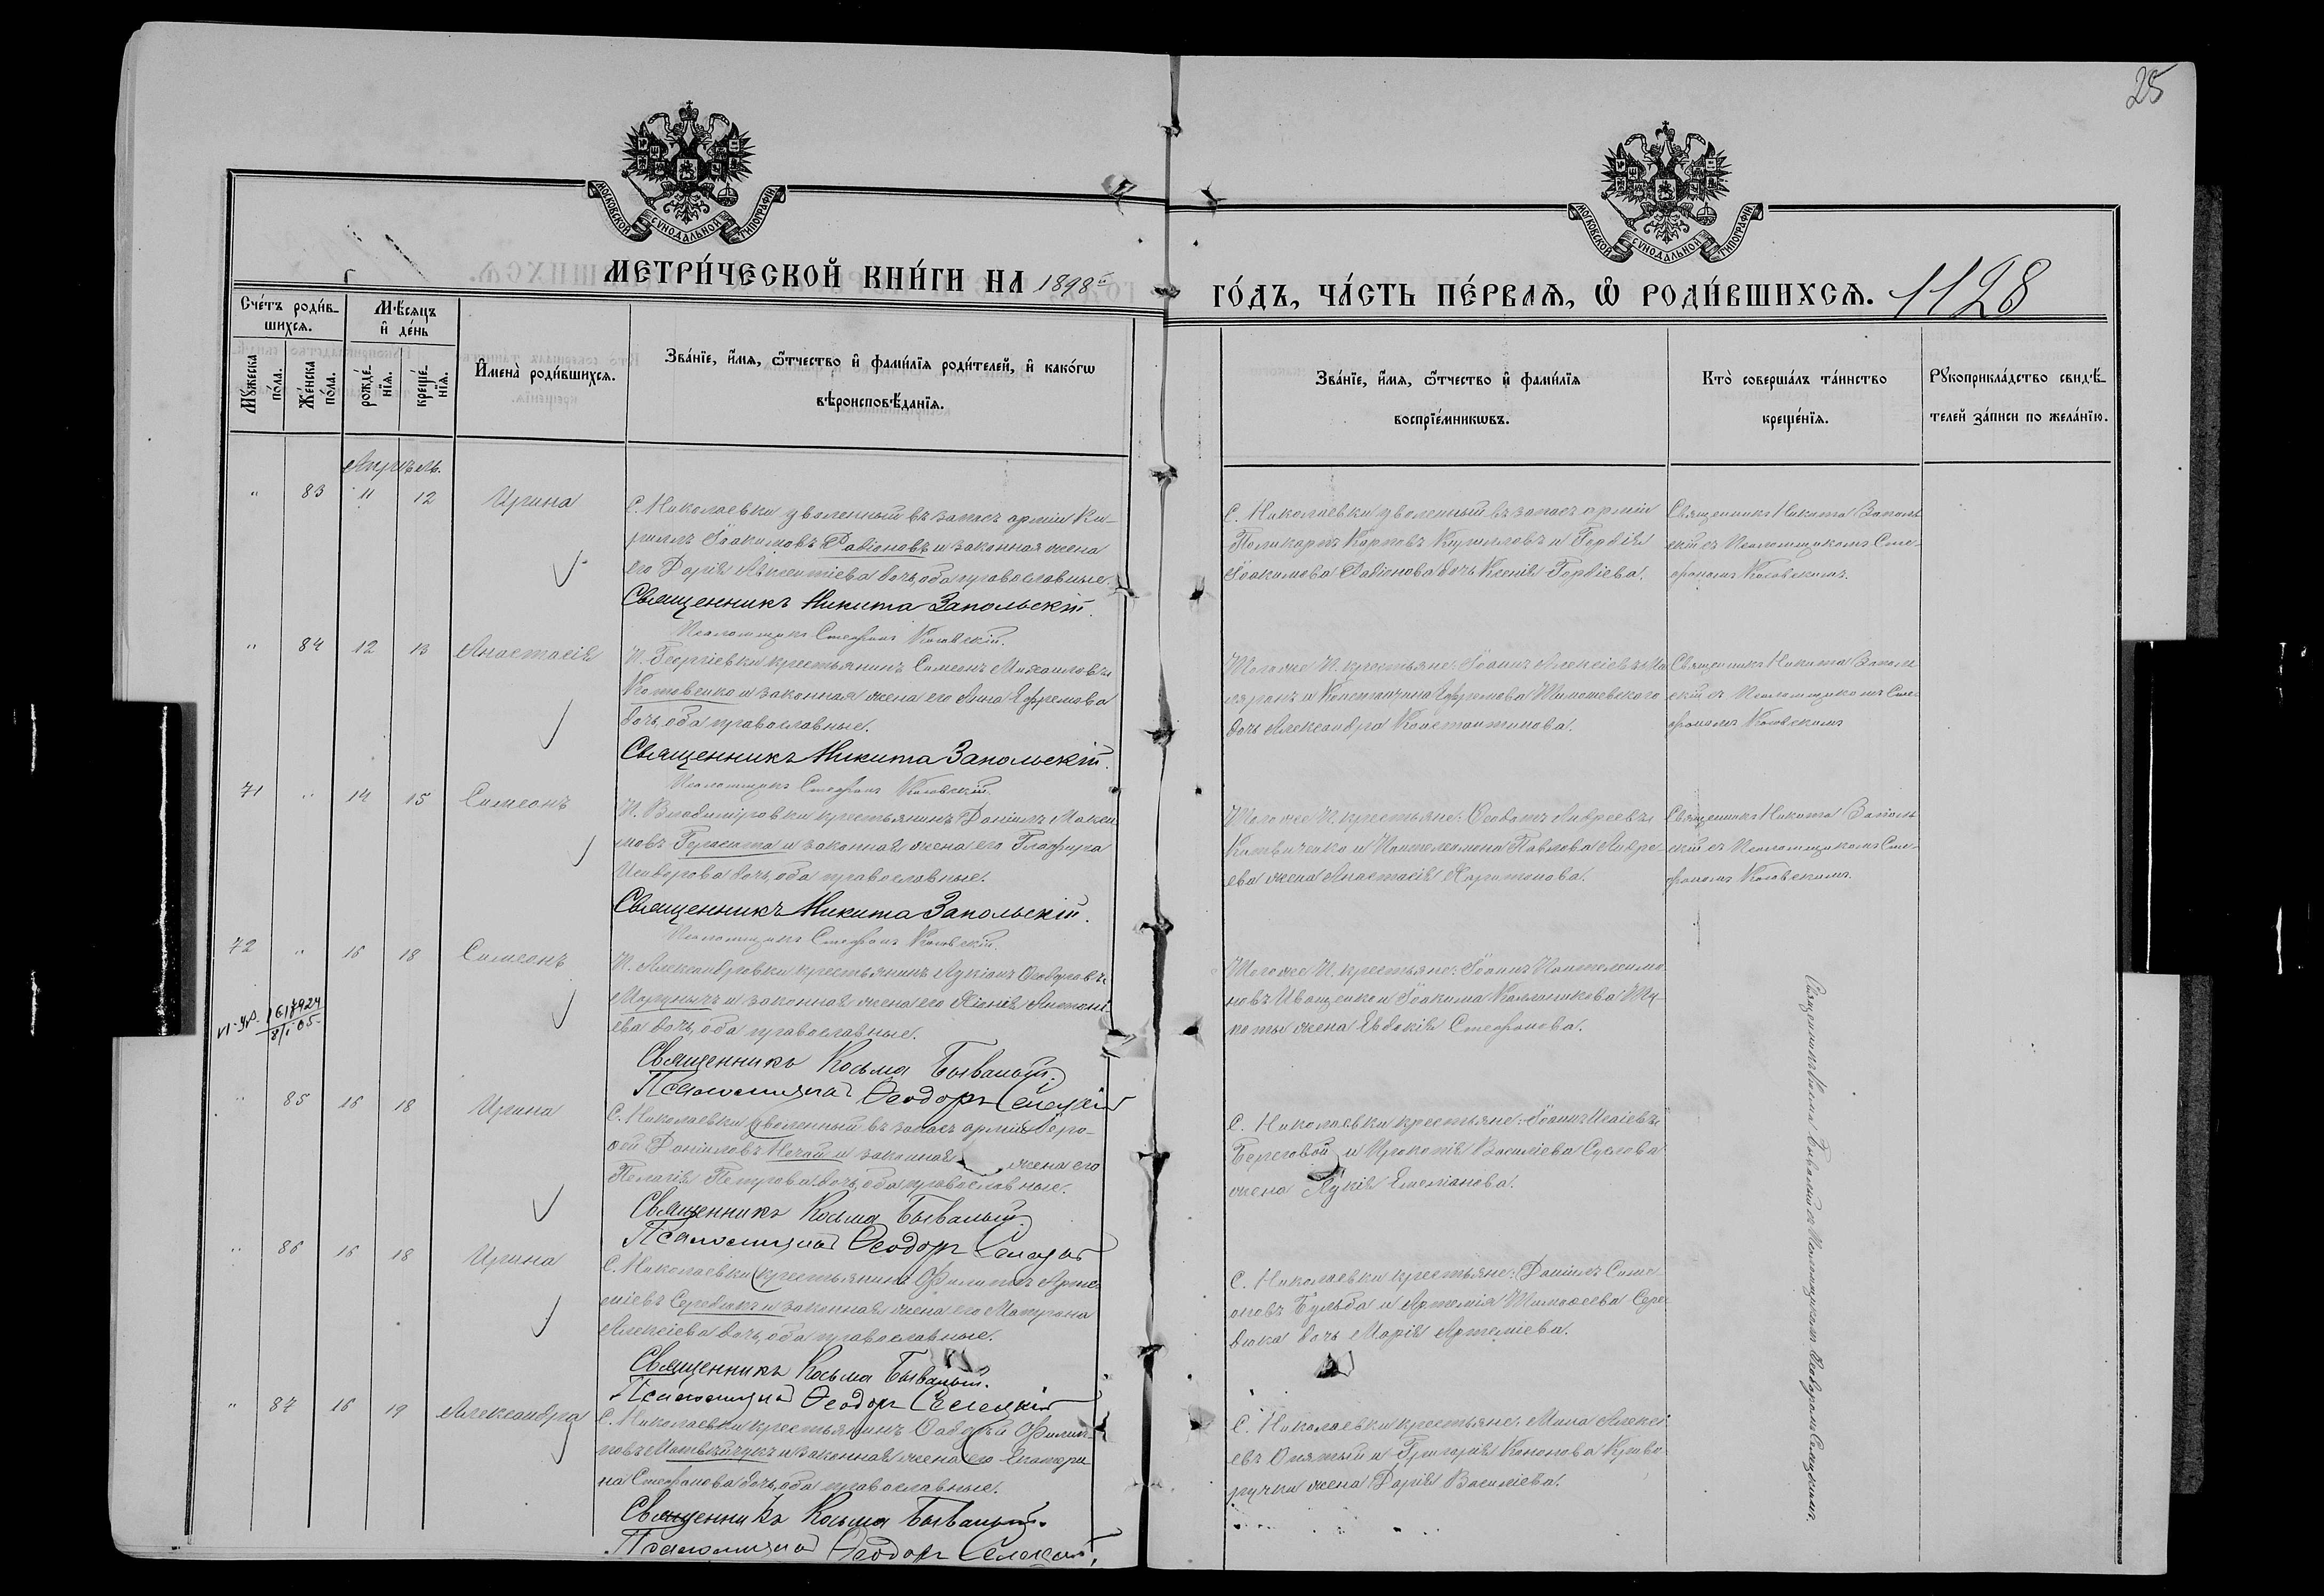 25
МОСКОВСКОЙ СУНОДАЛЬНОЙ ТИПОГРАФІИ
МОСКОВСКОЙ СУНОДАЛЬНОЙ ТИПОГРАФІИ
МЕТРИ́ЧЕСКОЙ КНИ́ГИ НА 1898й
ГО́ДЪ, ЧА́СТЬ ПЕ́РВАЯ, Ѡ РОДИ́ВШИХСЯ. 1128
Сче́тъ роди́в-
шихся.
Мѣ́сяцъ
и҆ де́нь
Мꙋ́жеска
по́ла.
Же́нска
по́ла.
рожде́-
нїя.
креще́-
нїя.
И҆мена̀ роди́вшихся.
Зва́нїе, и҆́мя, ѻ҆́тчество и҆ фами́лїя роди́телей, и҆ како́гѡ
вѣроисповѣ́данїя.
Зва́нїе, и҆́мя, ѻ҆́тчество и҆ фами́лїя
воспрїе́мникѡвъ.
Кто̀ соверша́лъ та́инство
креще́нїя.
Рꙋкоприкла́дство свидѣ́-
телей за́писи по жела́нїю.
Апрѣль.
" 83 11 12 Ирина
С. Николаевки уволенный въ запасъ арміи Ки-
риллъ Іоакимовъ Радіоновъ и законная жена
его Дарія Авксентіева дочь, оба православные.
Священникъ Никита Запольскій.
Псаломщикъ Стефанъ Косовскій.
С. Николаевки уволенный въ запасъ арміи
Поликарпъ Карповъ Кирилловъ и Гордія
Іоакимова Радіонова дочь Ксенія Гордіева.
Священникъ Никита Заполь
скій съ Псаломщикомъ Сте-
фаномъ Косовскимъ.
" 84 12 13 Анастасія
П. Георгіевки крестьянинъ Симеонъ Михаиловъ
Котовенко и законная жена его Анна Ефремова
дочь, оба православные.
Священникъ Никита Запольскій.
Псаломщикъ Стефанъ Косовскій.
Того же П. крестьяне: Іоаннъ Алексіевъ
и Константина Ефремова
дочь Александра Константинова.
Священникъ Никита Заполь
скій съ Псаломщикомъ Сте-
фаномъ Косовскимъ
71 " 14 15 Симеонъ
П. Владиміровки крестьянинъ Даніилъ Макси
мовъ Герасимо и законная жена его Глафира
Исидорова дочь, оба православные.
Священникъ Никита Запольскій.
Псаломщикъ Стефанъ Косовскій.
Того же П. крестьяне: Ѳеодотъ Андреевъ
и Пантелеимона Павлова Андре-
ева жена Анастасія Харитонова.
Священникъ Никита Заполь
скій съ Псаломщикомъ Сте-
фаномъ Косовскимъ.
72 " 16 18 Симеонъ
1617924
8/I 05
П. Александровки крестьянинъ Лукіанъ Ѳеодоровъ
и законная жена его Хіонія Антоні-
ева дочь, оба православные.
Священникъ Косьма Бывалый.
Псаломщикъ Ѳеодоръ Селецкій
Того же П. крестьяне: Іоаннъ Пантелеимо-
новъ Иващенко и Іоакима Каллиникова
жена Евдокія Стефанова.
Священникъ Косьма Бывалый съ Псаломщикомъ Ѳеодоромъ Селецкимъ.
" 85 16 18 Ирина
С. Николаевки уволенный въ запасъ арміи Іеро-
ѳей Даніиловъ Нечай и законная жена его
Пелагія Петрова дочь, оба православные.
Священникъ Косьма Бывалый.
Псаломщикъ Ѳеодоръ Селецкій
С. Николаевки крестьяне: Іоаннъ Исаіевъ
Береговой и Прокопія Василіева Суслова
жена Гликія Емеліанова.
" 86 16 18 Ирина
С. Николаевки крестьянинъ Филиппъ Арте-
міевъ Середюкъ и законная жена его Матрона
Алексіева дочь, оба православные.
Священникъ Косьма Бывалый.
Псаломщикъ Ѳеодоръ Селецкій
С. Николаевки крестьяне: Даніилъ Симе-
оновъ Бульба и Артемія Тимоѳеева Сере-
дюка дочь Марія Артеміева.
" 87 16 19 Александра
С. Николаевки крестьянинъ Ѳаддей Филип-
повъ Матвѣйчукъ и законная жена его Екатери
на Стефанова дочь, оба православные.
Священникъ Косьма Бывалый.
Псаломщикъ Ѳеодоръ Селецкій.
С. Николаевки крестьяне: Мина Алексі-
евъ Опятый и Григорія Кононова Криво-
ручки жена Дарія Василіева.